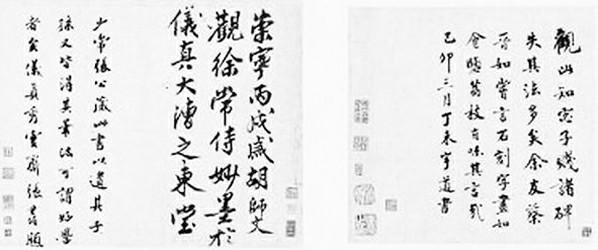 觀此知諸碑
失其法多矣余友蔡
晉如嘗言石刻字畫如
食曬荔枝有味其言哉
己卯三月丁未道書
崇寧丙戌歲胡師文
觀徐常侍妙墨於
儀真大漕之東堂
少常張公藏此書以遺其子
孫又皆得其筆法可謂好學
者矣儀真雲齋張題